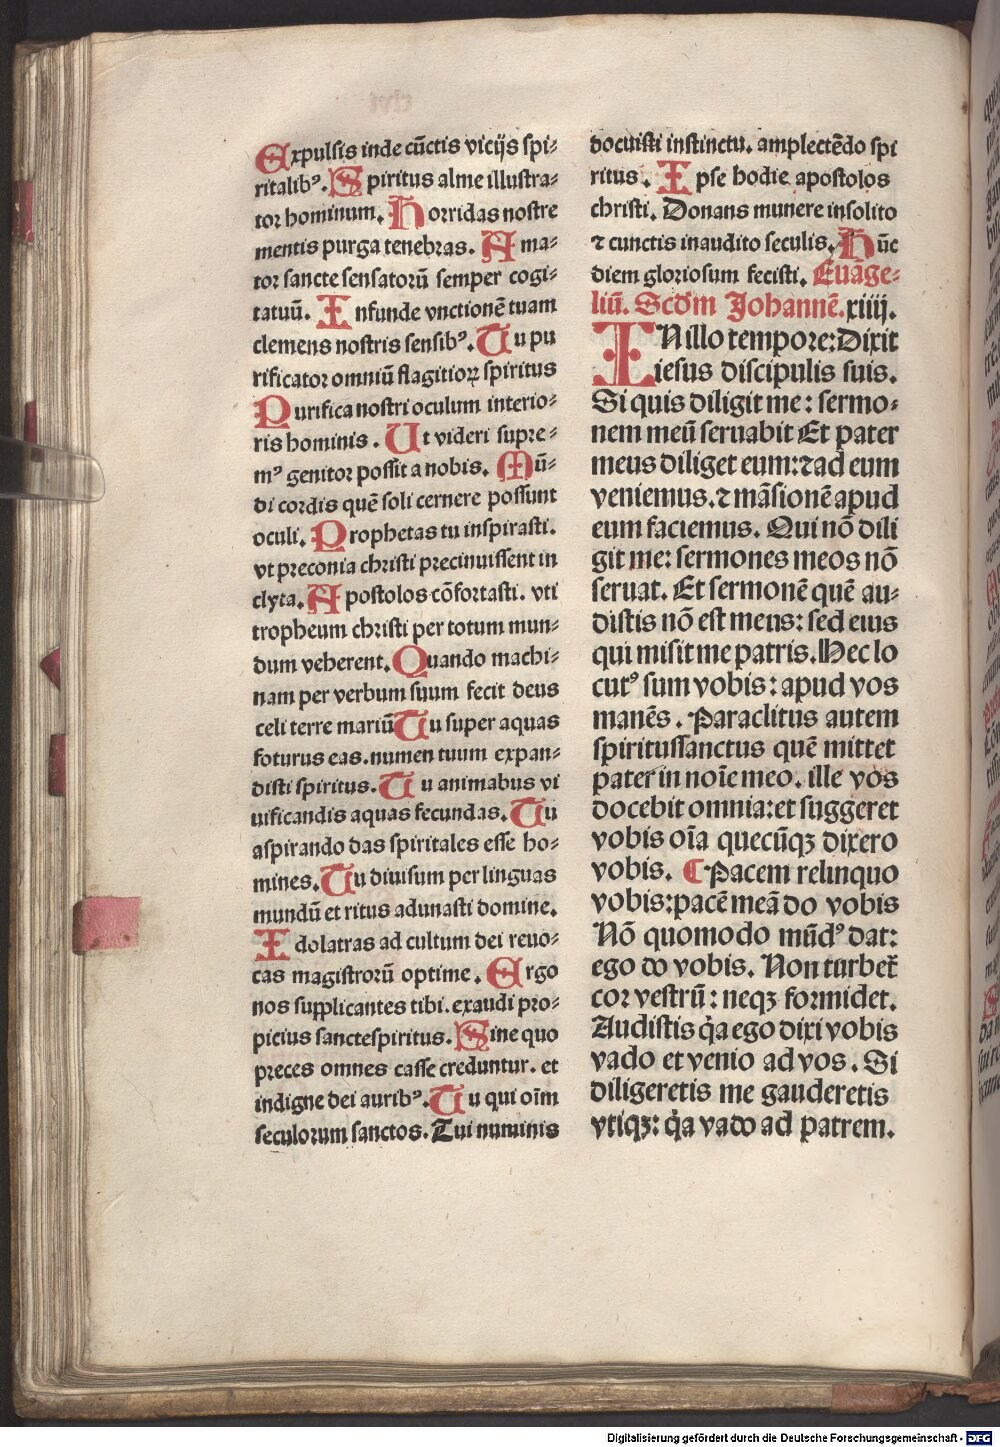 Expulsis inde cūctis vicijs spi-
ritalibꝰ. Spiritus alme illustra-
tor hominum. Horridas nostre
mentis purga tenebras. Ama-
tor sancte sensatorū semper cogi-
tatuū. Infunde vnctionē tuam
clemens nostris sensibꝰ. Tu pu
rificator omniū flagitioꝝ spiritus
Purifica nostri oculum interio-
ris hominis. Ut videri supre-
mꝰ genitor possit a nobis. Mū-
di cordis quē soli cernere possunt
oculi. Prophetas tu inspirasti.
vt preconia christi precinuissent in
clyta. Apostolos cōfortasti. vti
tropheum christi per totum mun-
dum veherent. Quando machi-
nam per verbum suum fecit deus
celi terre mariū Tu super aquas
foturus eas. numen tuum expan-
disti spiritus. Tu animabus vi
uificandis aquas fecundas. Tu
aspirando das spiritales esse ho-
mines. Tu diuisum per linguas
mundū et ritus adunasti domine.
Idolatras ad cultum dei reuo-
cas magistrorū optime. Ergo
nos supplicantes tibi. exaudi pro-
picius sanctespiritus. Sine quo
preces omnes casse creduntur. et
indigne dei auribꝰ. Tu qui oīm
seculorum sanctos. Tui numinis
docuisti instinctu. amplectēdo spi
ritus. Ipse hodie apostolos
christi. Donans munere insolito
⁊ cunctis inaudito seculis. Hūc
diem gloriosum fecisti. Euāge-
liū. Scdm̄ Johannē. xiiij.
IN illo tempore: Dixit
iesus discipulis suis.
Si quis diligit me: sermo-
nem meū seruabit Et pater
meus diliget eum: ⁊ ad eum
veniemus. ⁊ māsionē apud
eum faciemus. Qui nō dili
git me: sermones meos nō
seruat. Et sermonē quē au-
distis nō est meus: sed eius
qui misit me patris. Hec lo
cutꝰ sum vobis: apud vos
manēs. Paraclitus autem
spiritussanctus quē mittet
pater in noīe meo. ille vos
docebit omnia: et suggeret
vobis oīa quecūqꝫ dixero
vobis. ¶ Pacem relinquo
vobis: pacē meā do vobis
Nō quomodo mūdꝰ dat:
ego do vobis. Non turbet̄
cor vestrū: neqꝫ formidet.
Audistis q̄a ego dixi vobis
vado et venio ad vos. Si
diligeretis me gauderetis
vtiqꝫ: q̄a vado ad patrem.
Digitalisierung gefördert durch die Deutsche Forschungsgemeinschaft - DFG